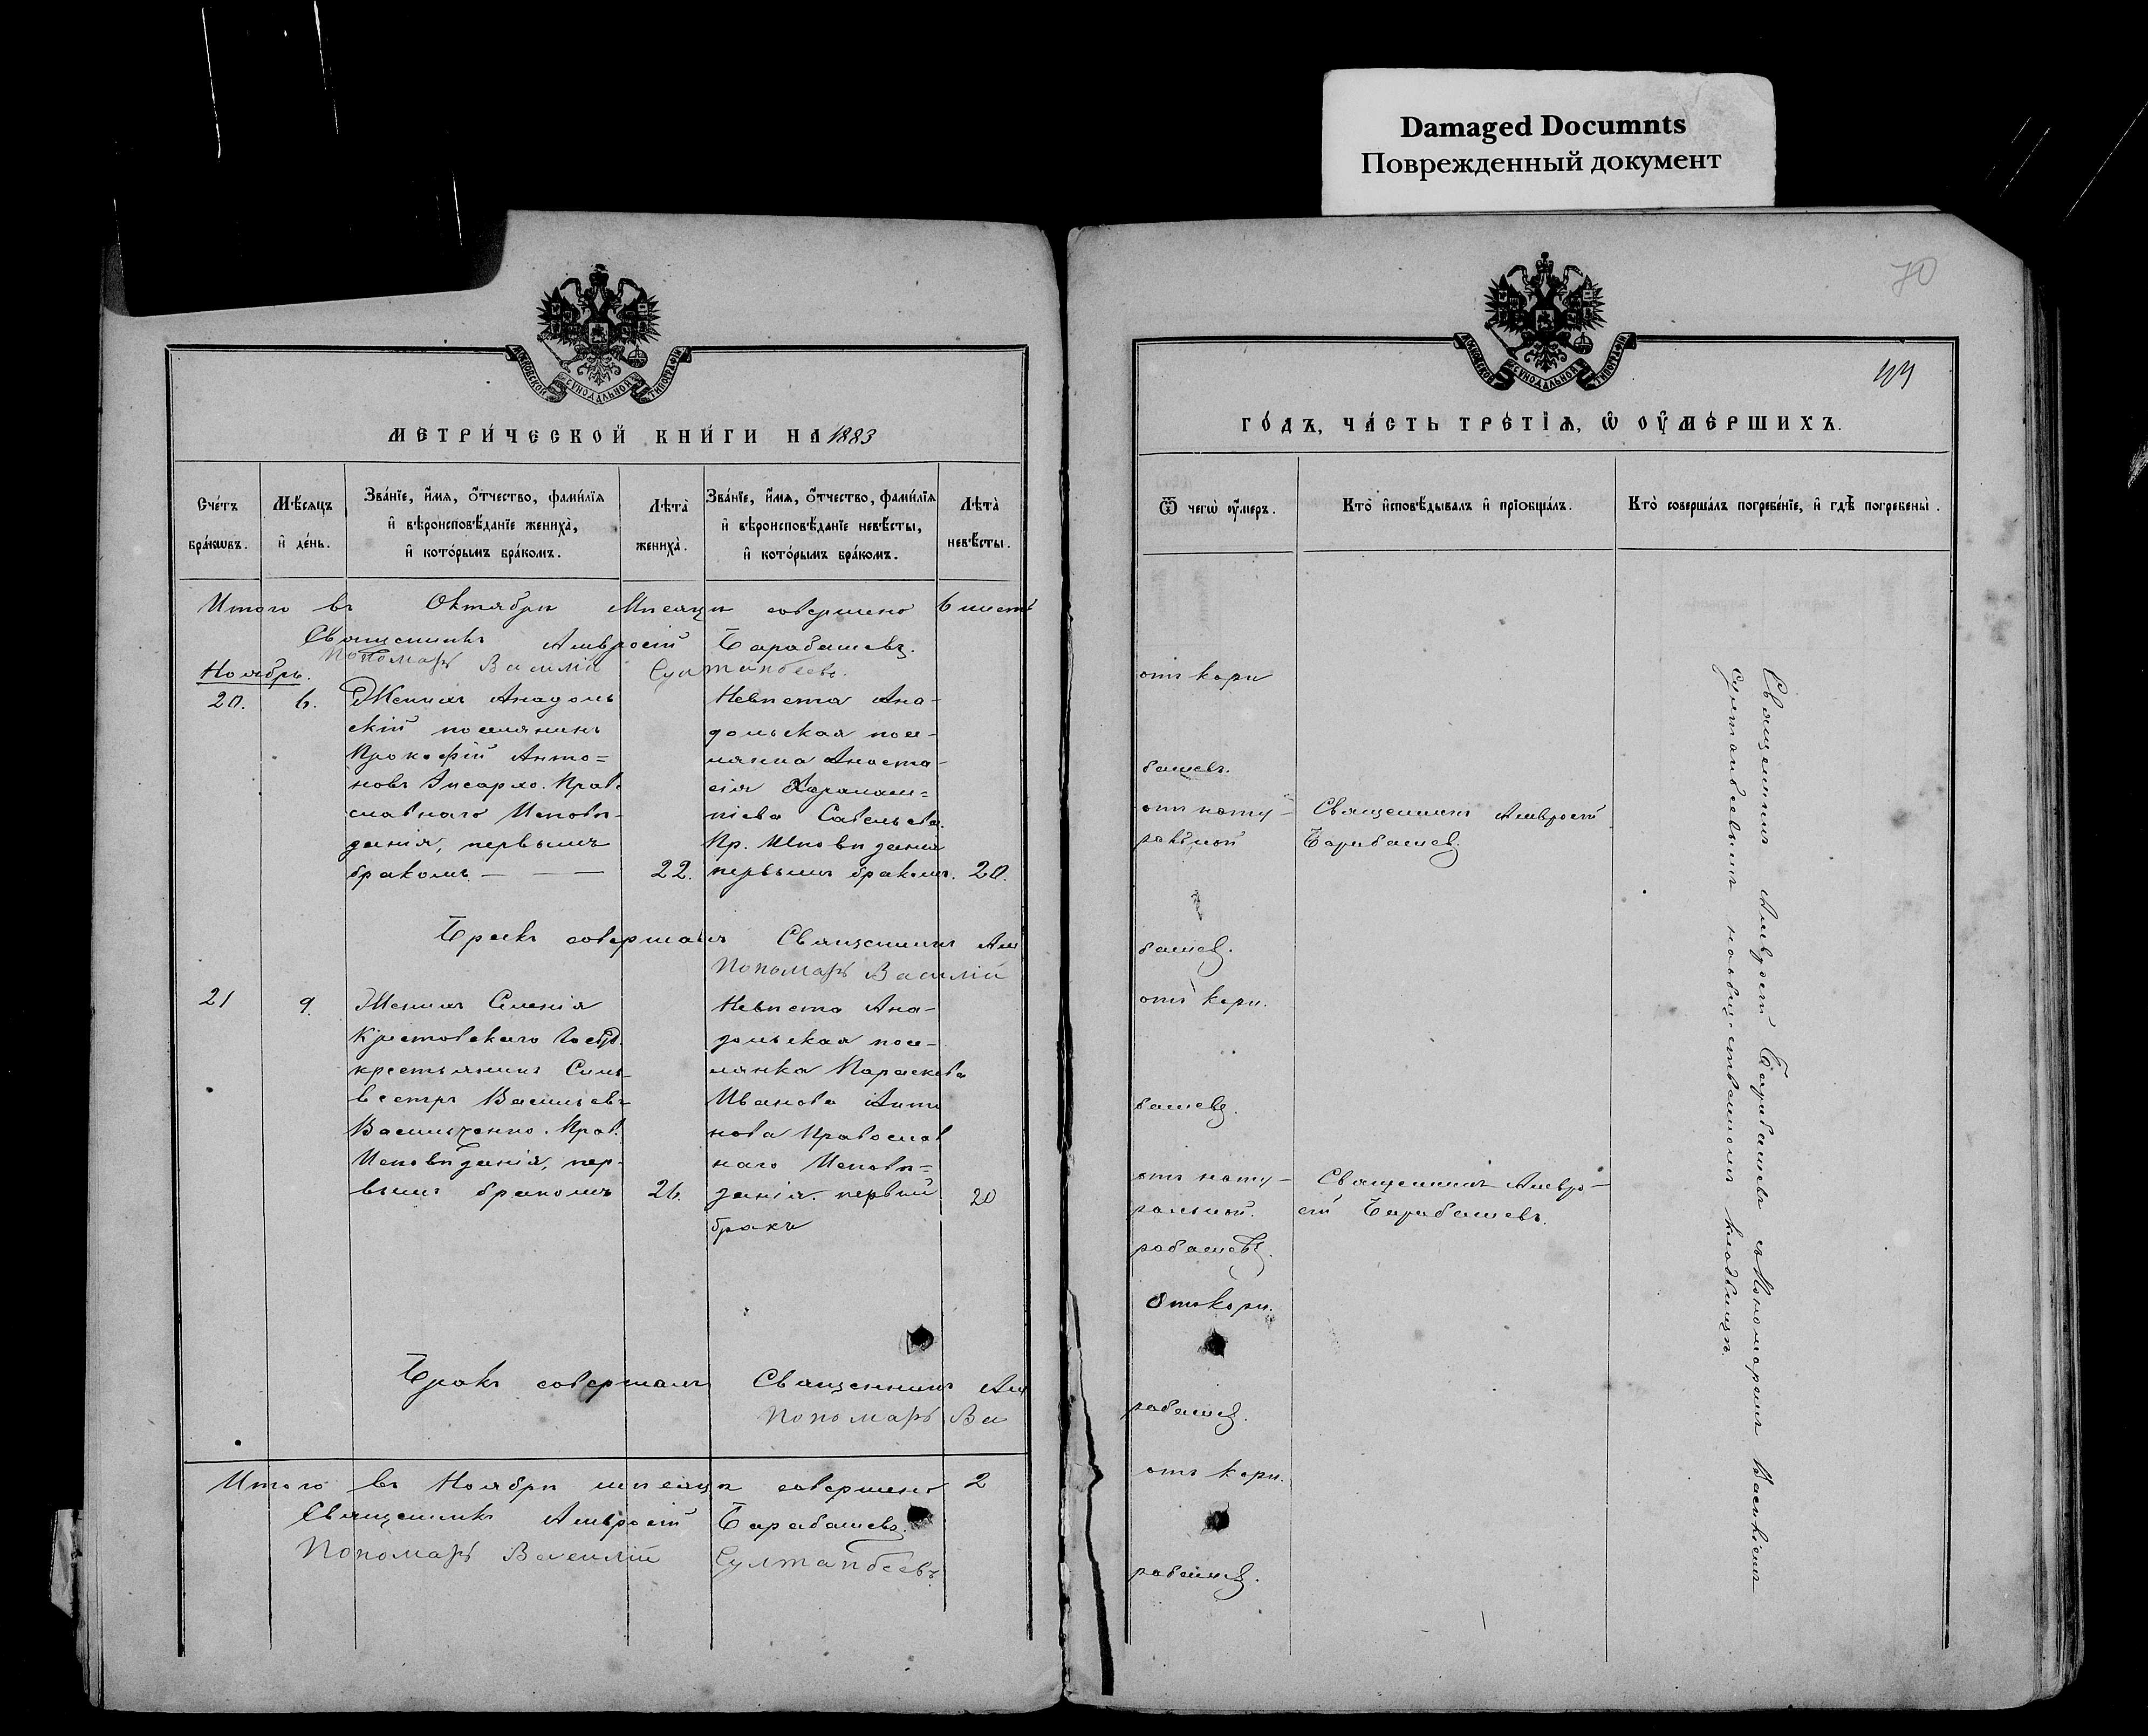 Damaged Documnts
Поврежденный документ
70
МОСКОВСКОЙ СѴНОДАЛЬНОЙ ТИПОГРАФІИ
МЕТРИ́ЧЕСКОЙ КНИ́ГИ НА 1883
Сче́тъ бра́кωвъ.
Мѣ́сяцъ и де́нь.
Зва́нїе, и́мѧ, ѻ́тчество, фами́лїѧ
и вѣроисповѣ́данїе жениха̀,
и кото́рымъ бра́комъ.
Лѣта̀ жениха̀.
Зва́нїе, и́мѧ, ѻ́тчество, фами́лїѧ
и вѣроисповѣ́данїе невѣ́сты,
и кото́рымъ бра́комъ.
Лѣта̀ невѣ́сты.
Итого въ Октябрѣ мѣсяцѣ совершено 6 шесть
Священникъ Амвросій Барабашевъ.
Пономарь Василій Султанбеевъ.
Ноябрь.
20. 6.
Женихъ Анадоль
скій поселянинъ
Прокофій Анто=
новъ Православнаго Исповѣ-
данія, первымъ
бракомъ — — — 22.
Невѣста Ана-
дольская посе-
лянка Анаста-
сія
Савельева.
Пр. Исповѣданія
первымъ бракомъ. 20.
Бракъ совершалъ Священникъ Ам
Пономарь Василій
21 9.
Женихъ Селенія
Крестовскаго Госуд.
крестьянинъ Силь-
вестръ Васильевъ
Васильченко. Прав.
Исповѣданія, пер-
вымъ бракомъ 26.
Невѣста Ана-
дольская посе-
лянка Параскева
Иванова Анто
нова Православ
наго Исповѣ=
данія. первый 20
бракъ
Бракъ совершалъ Священникъ Ам
Пономарь Ва
Итого въ Ноябрѣ мѣсяцѣ совершено 2
Священникъ Амвросій Барабашевъ.
Пономарь Василій Султанбеевъ.
МОСКОВСКОЙ СѴНОДАЛЬНОЙ ТИПОГРАФІИ
ГО́ДЪ, ЧА́СТЬ ТРЕ́ТІѦ, Ѡ ОУМЕ́РШИХЪ.
Ѿ чегѡ̀ оу́меръ.
Кто̀ исповѣ́дывалъ и прїобща́лъ.
Кто̀ соверша́лъ погребе́нїе, и гдѣ̀ погребены̀.
отъ кори
башевъ.
отъ нату-
ральной
Священникъ Амвросій
Барабашевъ.
башевъ.
отъ кори.
башевъ.
отъ нату-
ральной.
Священникъ Амвро-
сій Барабашевъ.
рабашевъ.
Отъ кори.
рабашевъ.
отъ кори.
рабашевъ.
Священникъ Амвросій Барабашевъ съ Пономаремъ Василіемъ
Султанбеевымъ на общественномъ кладбищѣ.